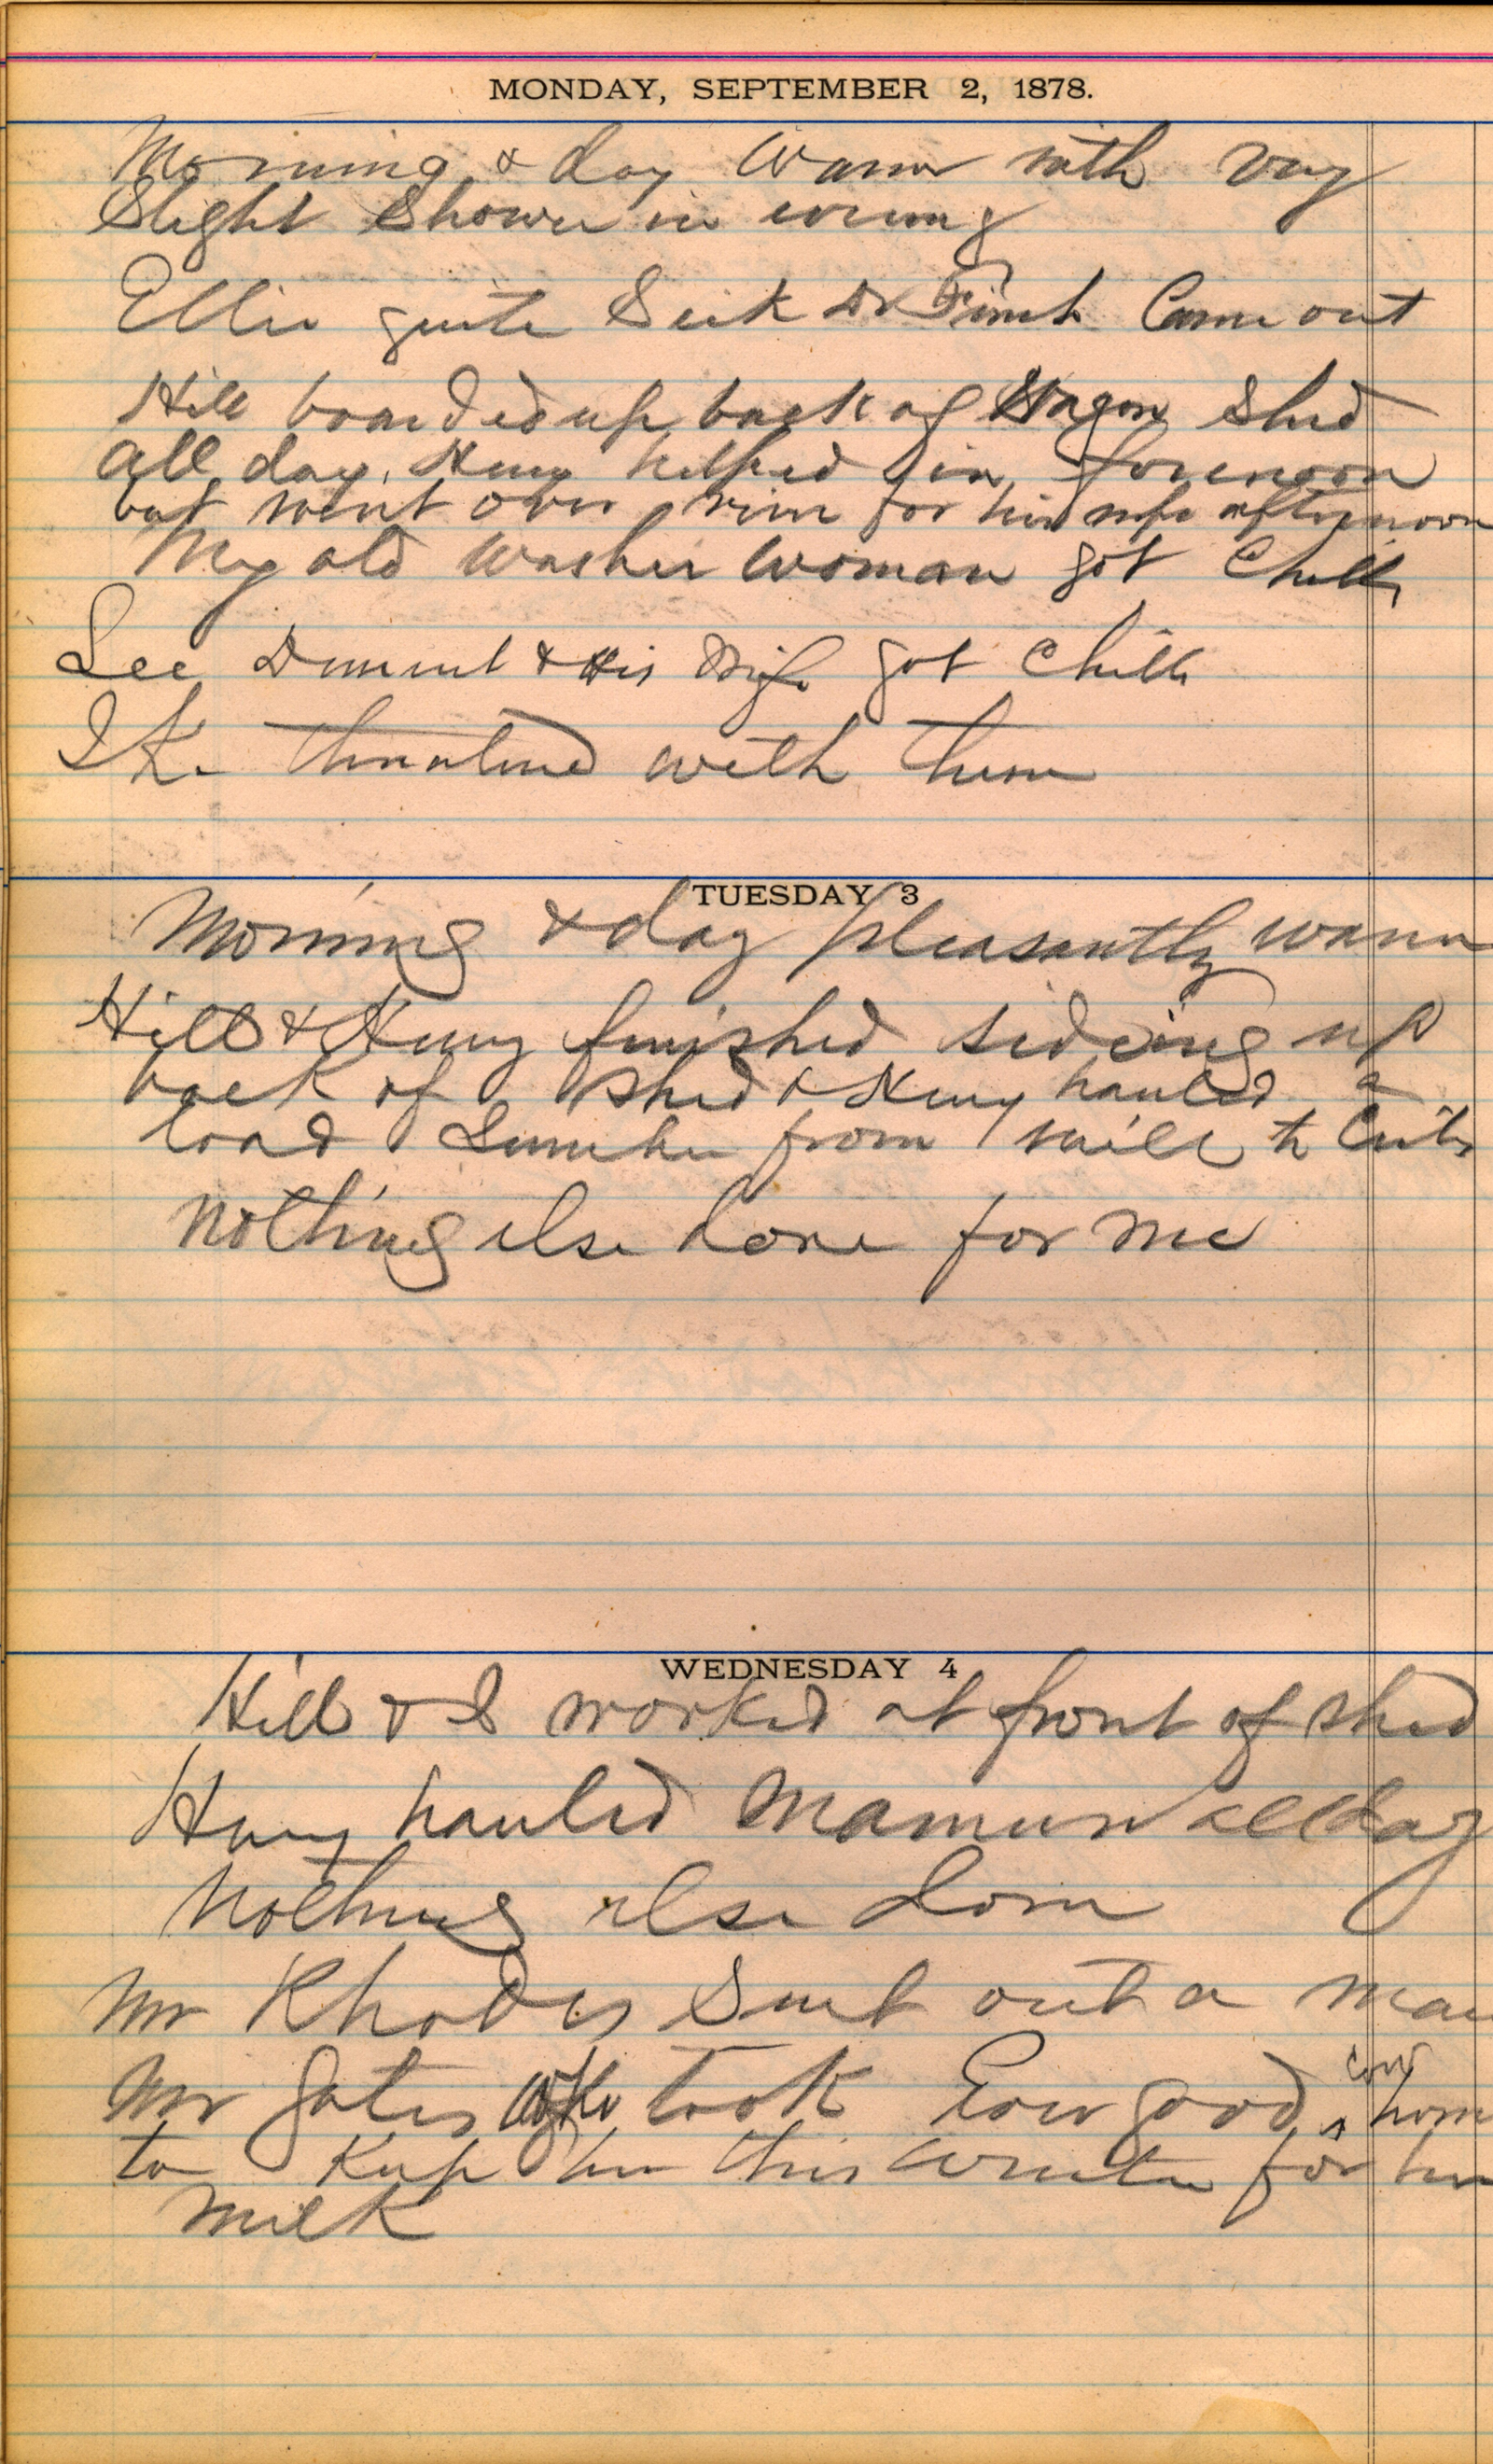 MONDAY, SEPTEMBER 2, 1878.
Morning & day Warm with very
Slight Shower in evening
Ellie quite Sick Dr Finch Came out
Hill boarded up back of Wagon Shed
all day. Henry helped in forenoon
but went over river for his wife afternoon
My old Washer Woman got Chills
Lee Dument & His Wife got Chills
Ike threatened with them
TUESDAY 3
Morning & day pleasantly warm
Hill & Henry finished sideing up
back of Shed & Henry hauled a
load Lumber from mill to
Nothing else done for me
WEDNESDAY 4
Hill & I worked at front of shed
Henry hauled Manure all day
Nothing else done
Mr Rhodes Sent out a man
Mr Gates who took Ewe good cow home
to Keep her this Winter for her
Milk